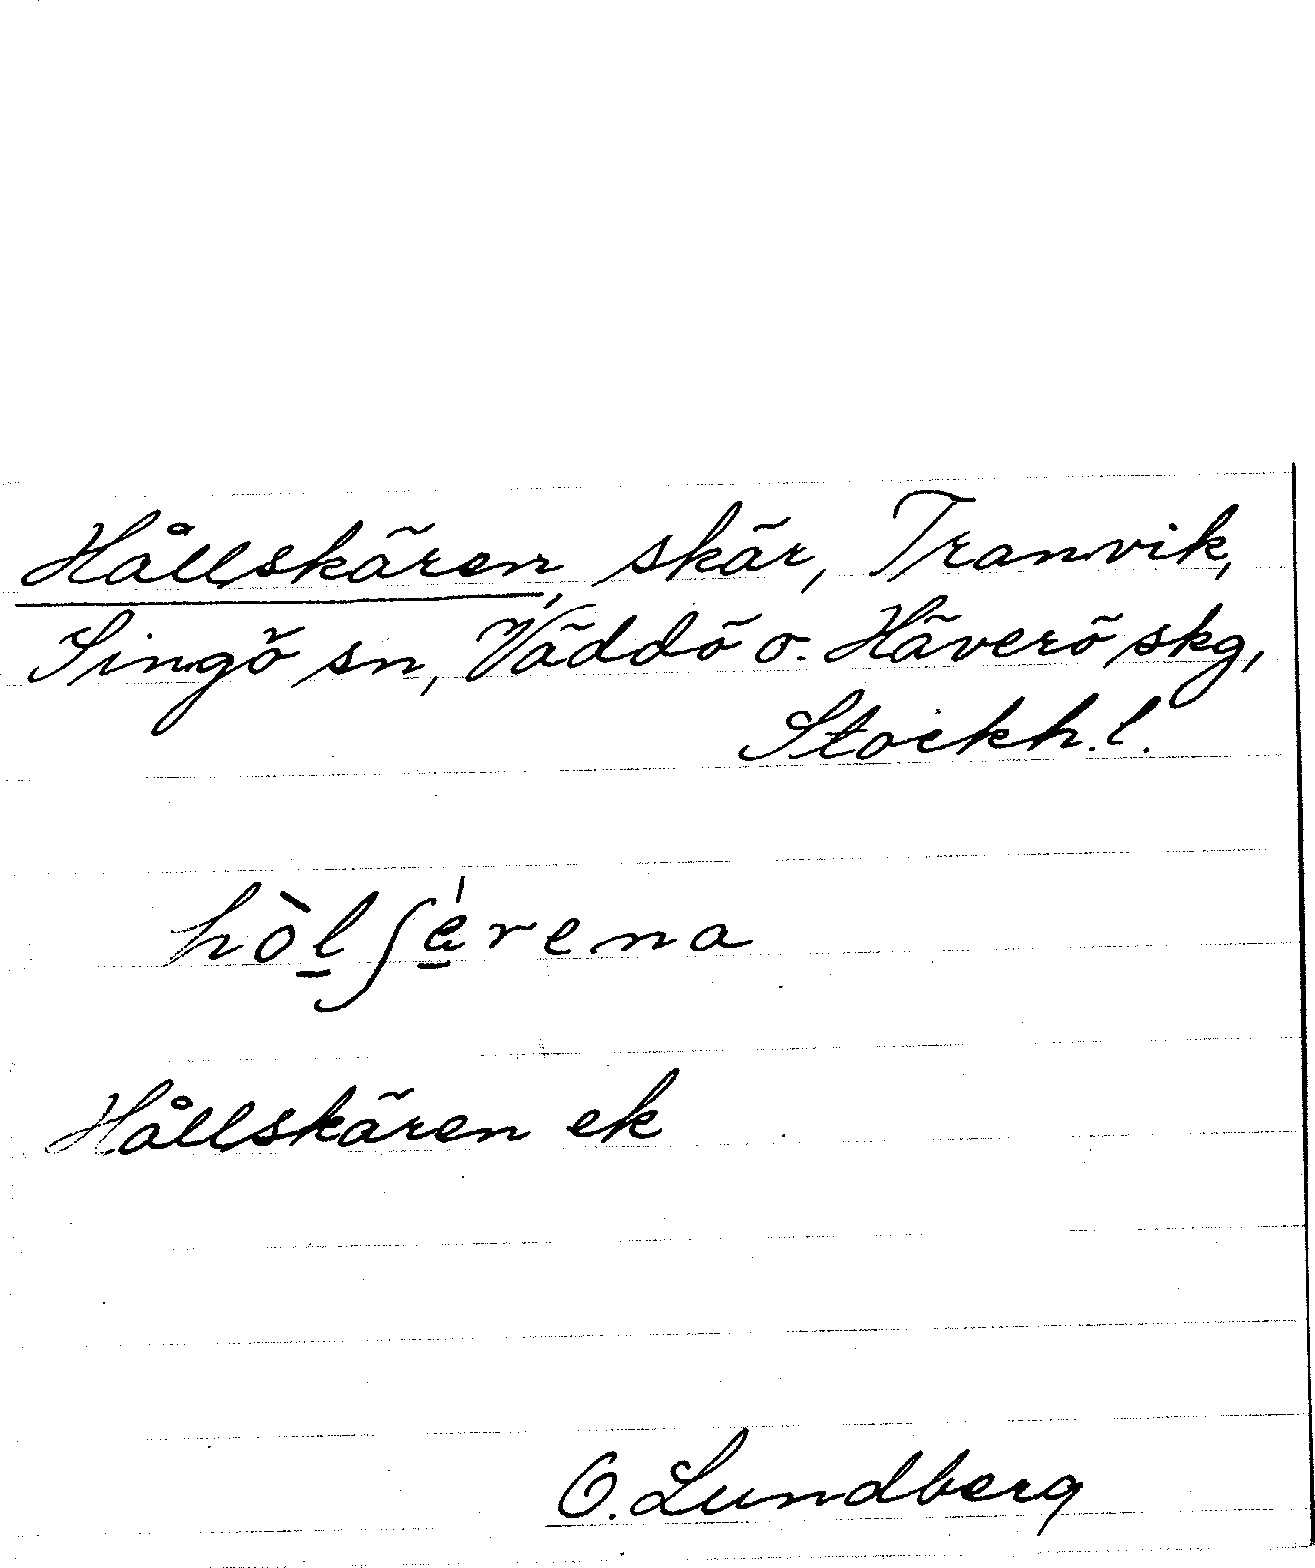 Hållskären, skär, Tranvik,
Singö sn, Väddö o. Häverö skg,
Stockh. l.
hòl̲ʃé̲rena
Hållskären ek
O. Lundberg